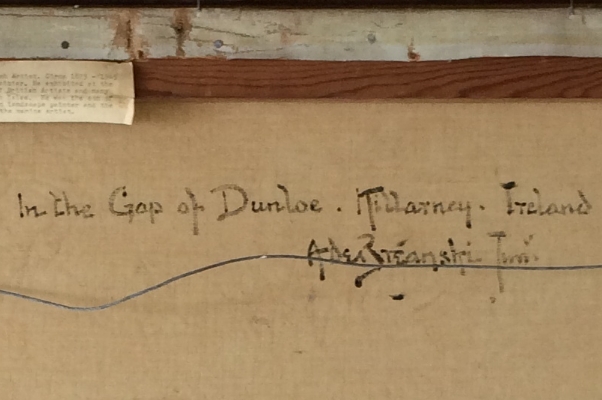 Artist. Circa
painter. He exhibited at the
British Artists and many
Isles. He was the son of
landscape painter and the
the marine artist.
In the Gap of Dunloe. Killarney. Ireland
A de Breanski Junr.